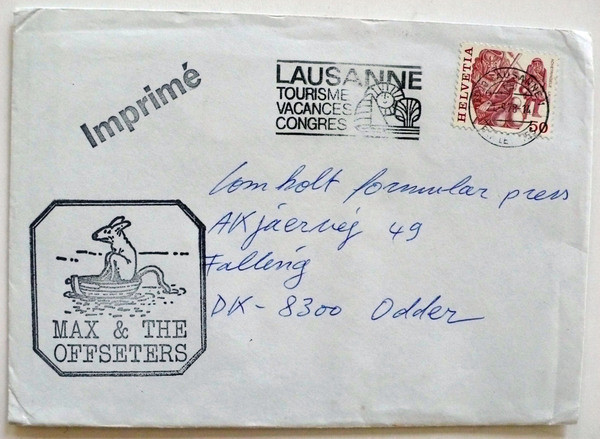 Imprimé
LAUSANNE
TOURISME
VACANCES
CONGRES
HELVETIA
50
Lomholt formular press
AKjáervéj 49
Falling
DK-8300 Odder
MAX & THE
OFFSETERS